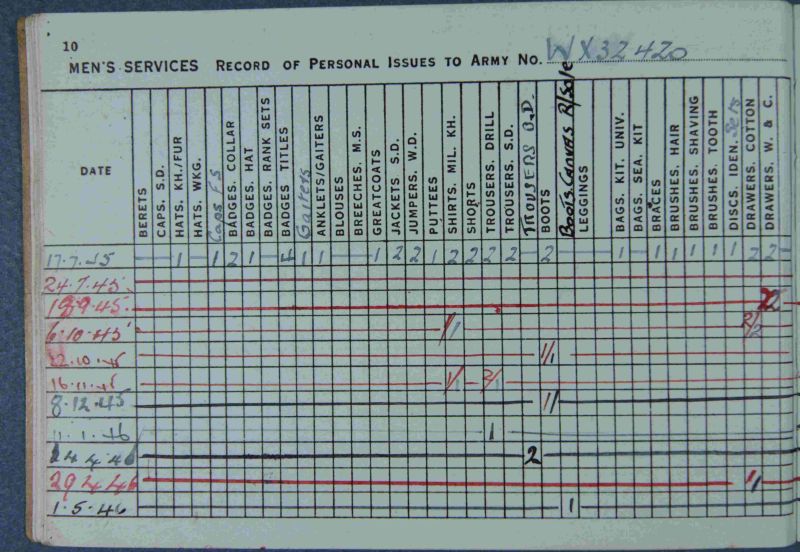 10
MEN'S SERVICES RECORD OF PERSONAL ISSUES TO ARMY NO. WX32420
DATE
BERETS
CAPS. S.D.
HATS. KH./FUR
HATS. WKG.
Caps FS
BADGES. COLLAR
BADGES. HAT
BADGES. RANK SETS
BADGES TITLES
Gaiters
ANKLETS/GAITERS
BLOUSES
BREECHES. M.S.
GREATCOATS
JACKETS S.D.
JUMPERS. W.D.
PUTTEES
SHIRTS. MIL. KH.
SHORTS
TROUSERS. DRILL
TROUSERS. S.D.
TROUSERS B.D.
BOOTS
Boots. Canvas R/Sole
LEGGINGS
BAGS. KIT. UNIV.
BAGS. SEA. KIT
BRACES
BRUSHES. HAIR
BRUSHES. SHAVING
BRUSHES. TOOTH
DISCS. IDEN. Sets
DRAWERS. COTTON
DRAWERS. W. & C.
17.7.45 1 1 2 1 4 1 1 1 2 2 1 2 2 2 2 2 1 1 1 1 1 1 2 2
24.7.45
18.9.45 2
6.10.45 1/1 2/2
22.10.45 1/1
16.11.45 1/1 2/1
8.12.45 1/
11.1.46 1
24 4 46 2
29 4 46 1/1
1.5.46 1